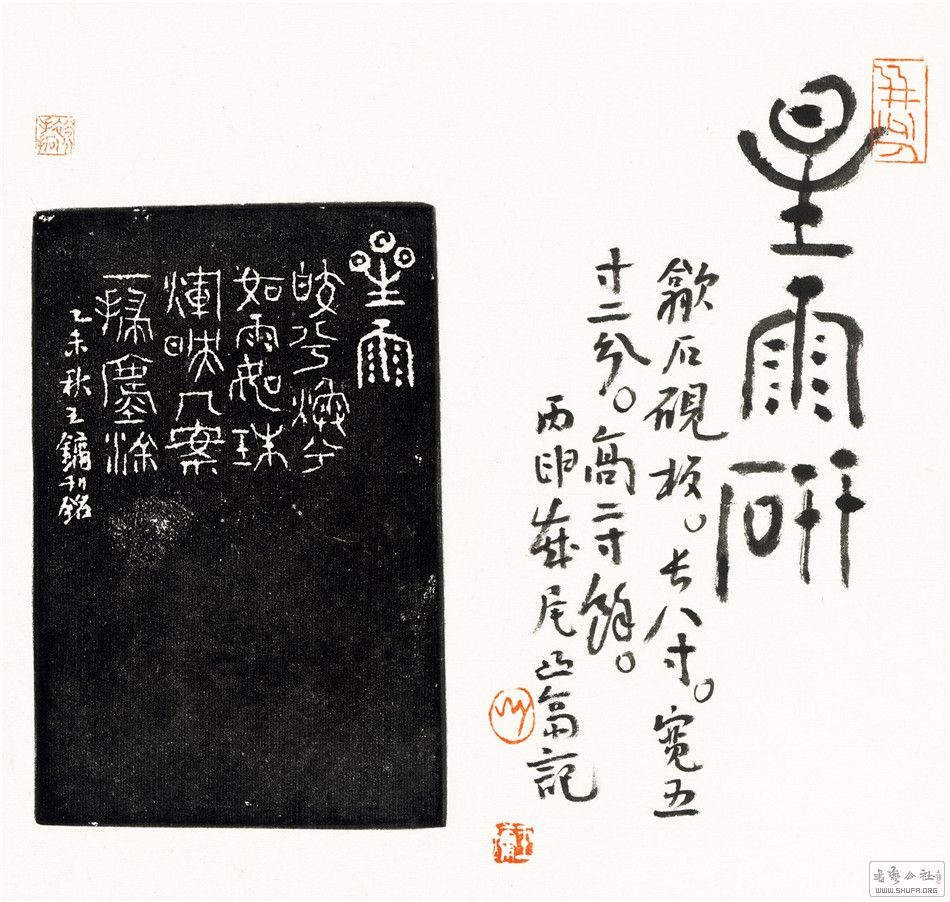 星雨研
歙石硯板。长八寸。寬五
寸二分。高二寸餘。
丙申歲尾凸斎記
星雨
皎兮煥兮
如雨如珠
煇映几案
一掃塵涂
乙未秋王鏞刊銘
书艺公社
WWW.SHUFA.ORG